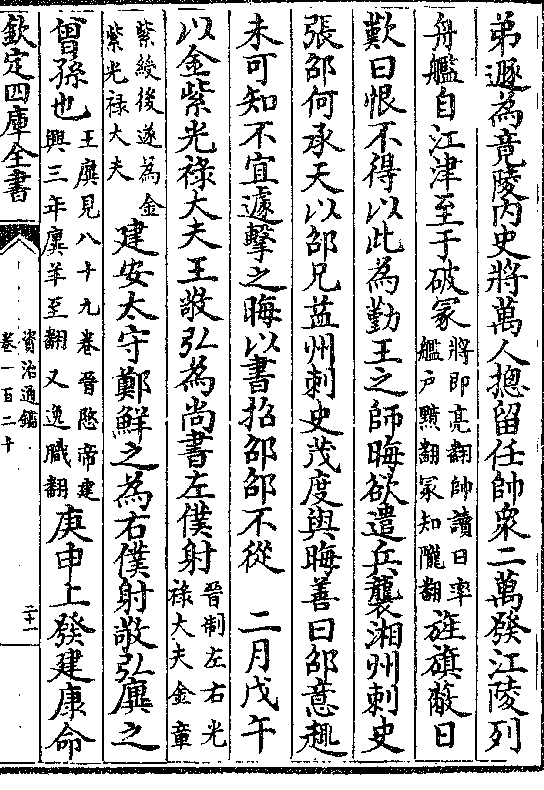 弟遯為竟陵内史將萬人摠留任帥衆二萬發江陵列
舟艦自江津至于破冢將即亮翻帥讀曰率艦户黤翻冢知隴翻旌旗蔽日
歎曰恨不得以此為勤王之師晦欲遣兵襲湘州刺史
張邵何承天以邵兄益州刺史茂度與晦善曰邵意趣
未可知不宜遽擊之晦以書招邵邵不從 二月戊午
以金紫光禄大夫王敬弘為尚書左僕射晉制左右光禄大夫金章
紫綬後遂為金紫光禄大夫建安太守鄭鮮之為右僕射敬弘廙之
曾孫也王廙見八十九卷晉愍帝建興三年廙羊至翻又逸職翻庚申上發建康命
欽定四庫全書
資治通鑑
卷一百二十
二十一